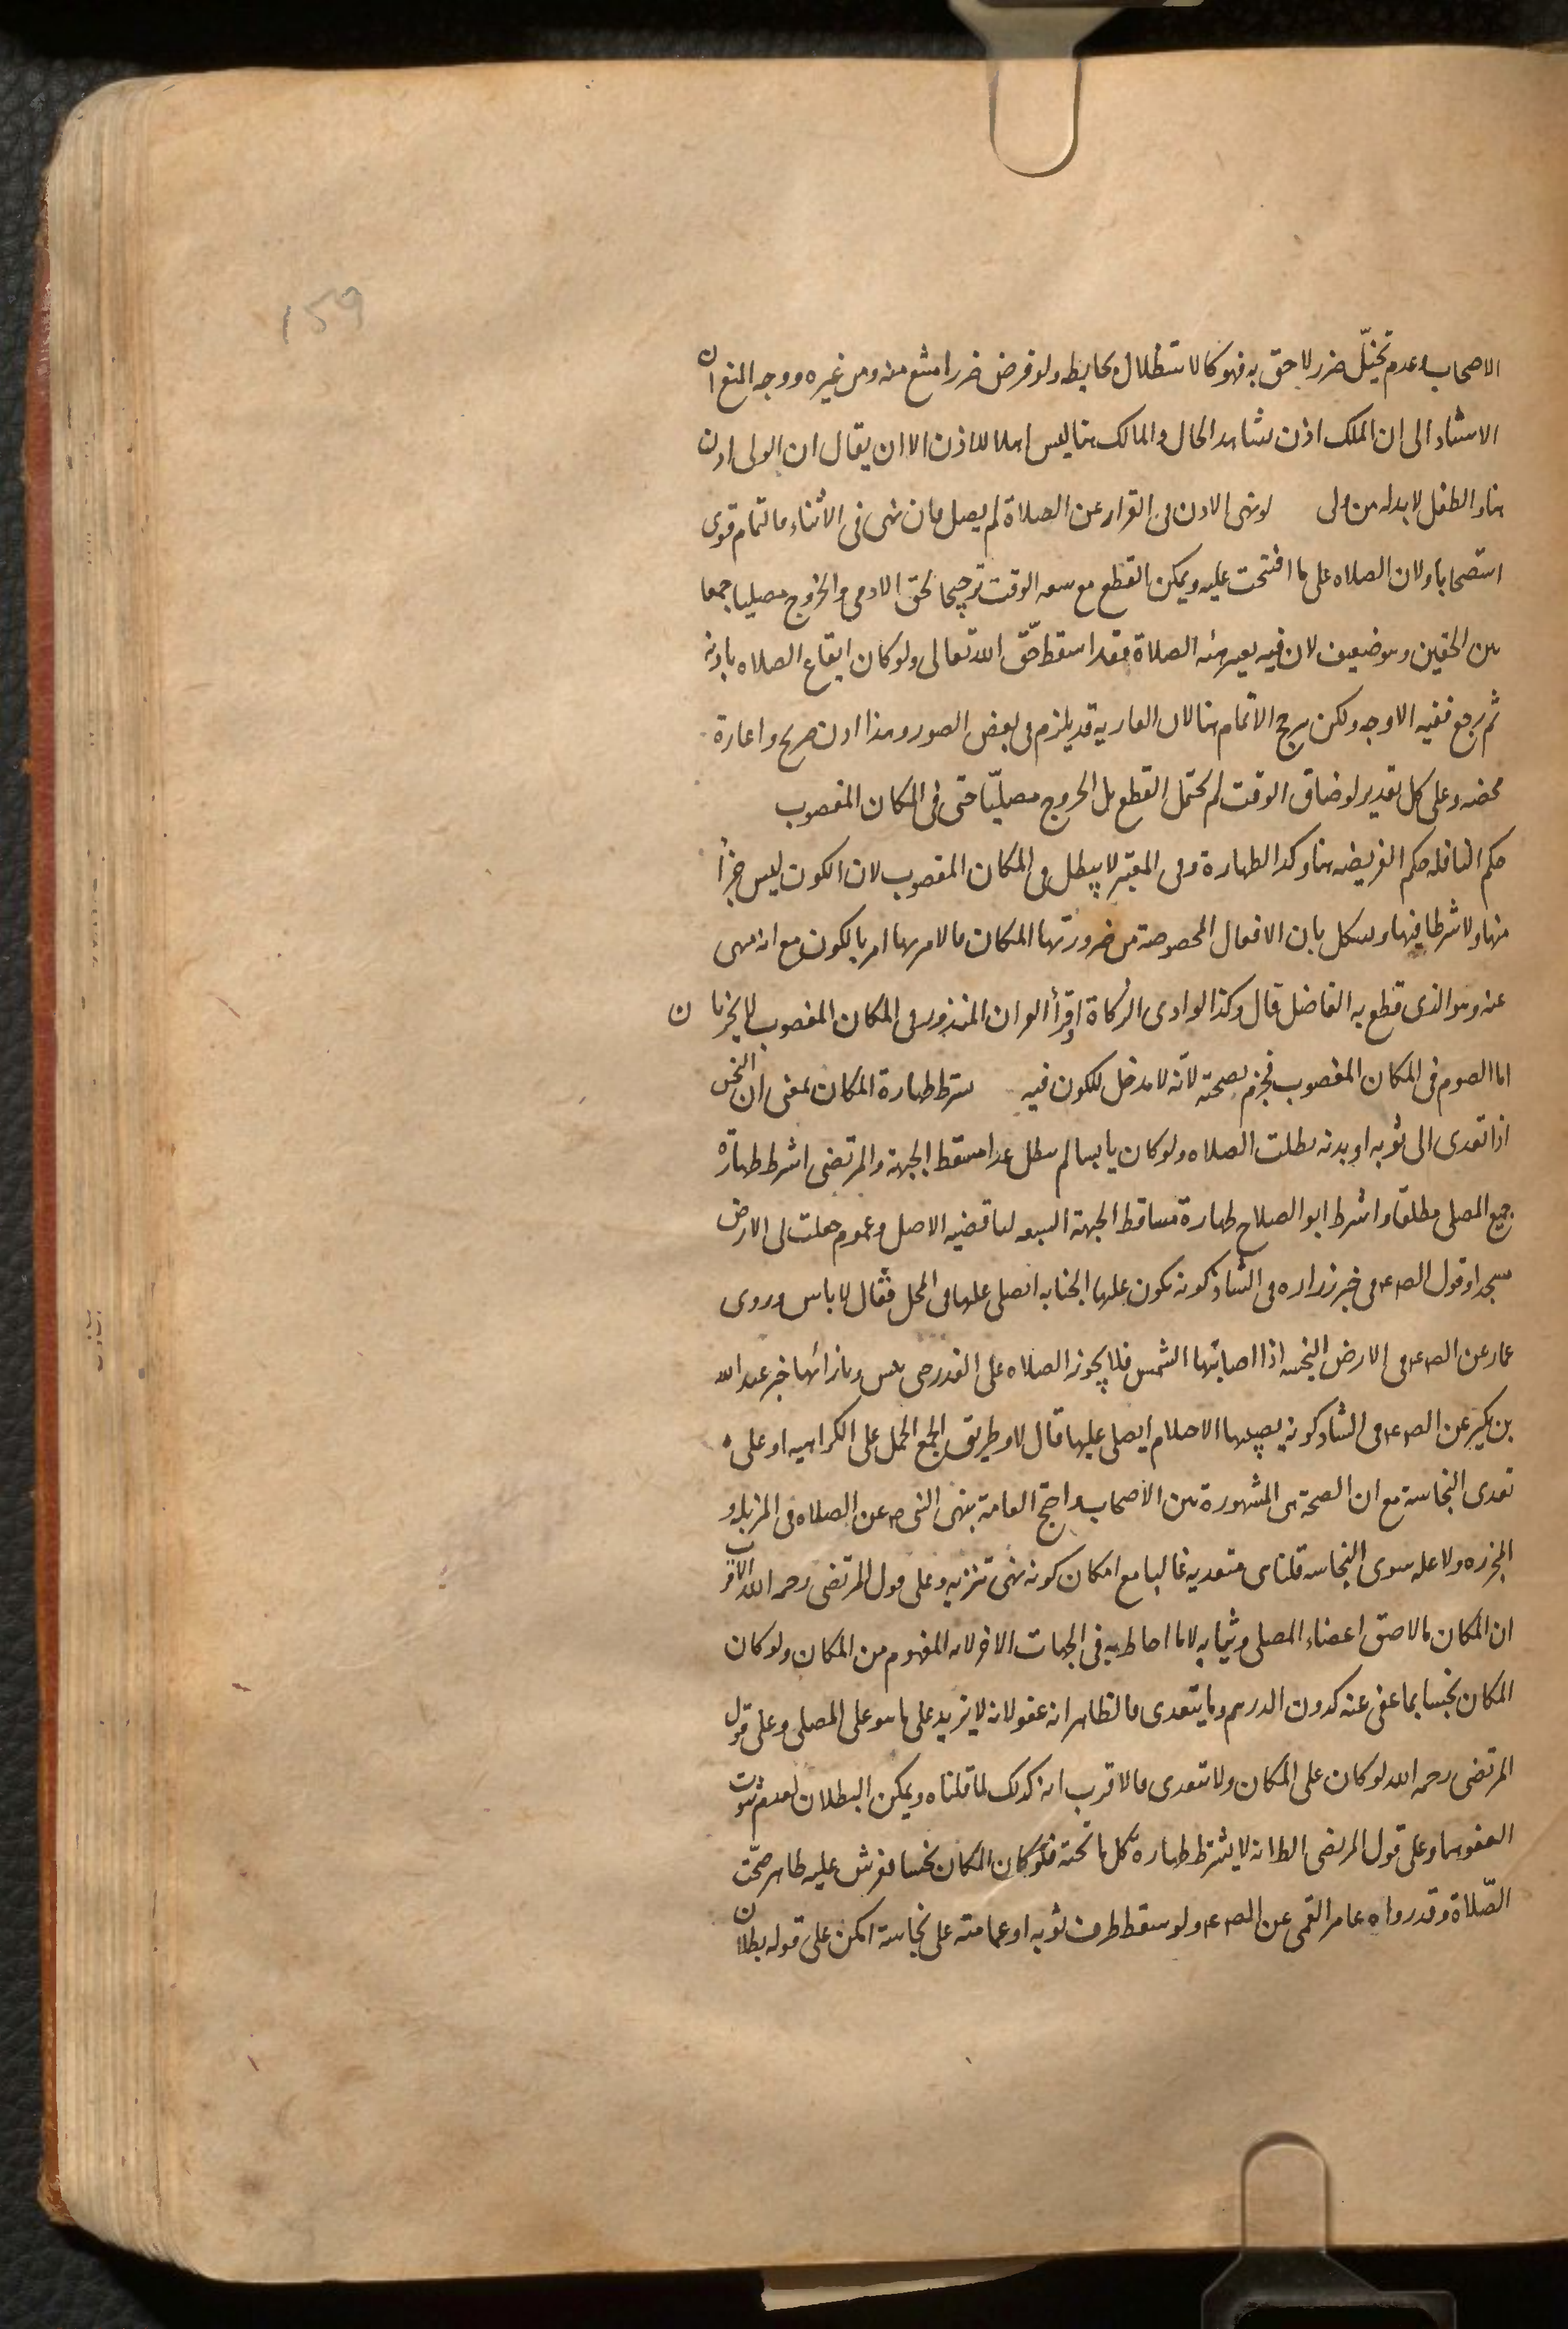 159
الاصحاب وعدم تخيّل ضرر لاحق به فهو كالاستظلال بحايطه ولو فرض ضررا امتنع منه ومن غيره ووجه المنع ان
الاستناد الى ان الملك اذن بشاهد الحال والمالك هنا ليس اهلا للاذن الا ان يقال ان الولى اذن
هنا والطفل لابد له من ولى لو نهى الاذن فى القرار عن الصلاة لم يصل فان نهى فى الأثناء فالتمام قوى
استصحابا ولان الصلاه على ما افتتحت عليه ويمكن القطع مع سعه الوقت ترجيحا لحق الادمى والخروج مصليا جمعا
بين الحقين وهو ضعيف لان فيه تغيير هيئه الصلاة فقد اسقط حقّ الله تعالى ولو كان ايقاع الصلاه باذنه
ثم رجع ففيه الاوجه ولكن يرجح الاتمام هنا لان العاريه قد يلزم فى بعض الصور وهذا اذن صريح واعارة
محضه وعلى كل تقدير لو ضاق الوقت لم يحتمل القطع بل الخروج مصليّا حتى فى المكان المغصوب
حكم النافله حكم الفريضه هنا وكذا الطهارة وفى المعتبر لا يبطل فى المكان المغصوب لان الكون ليس جزأ
منها ولا شرطا فيها ويشكل بان الافعال المخصوصة من ضرورتها المكان فالامر بها امر بالكون مع انه منهى
عنه وهو الذى قطع به الفاضل قال وكذا لو ادى الزكاة او قرأ القران المنذور فى المكان المغصوب لا يجزيا ن
اما الصوم فى المكان المغصوب فجزم بصحته لأنه لا مدخل للكون فيه يشترط طهارة المكان بمعنى ان النجس
اذا تعدى الى ثوبه او بدنه بطلت الصلاه ولو كان يابسا لم يبطل عدا مسقط الجبهة والمرتضى اشترط طهارة
جميع المصلى مطلقا واشترط ابو الصلاح طهارة مساقط الجبهة السبعه لنا قضيه الاصل وعموم جعلت لى الارض
مسجدا وقول الص ع فى خبر زراره فى الشاذكونه يكون عليها الجنابه ايصلى عليها فى المحمل فقال لا باس وروى
عمار عن الص ع فى الارض النجسه اذا اصابتها الشمس فلا يجوز الصلاه على القذر حتى يبس وبازائها خبر عبد الله
بن بكير عن الص ع فى الشاذكونه يصيبها الاحتلام ايصلى عليها قال لا وطريق الجمع الحمل على الكراهيه او على
تعدى النجاسة مع ان الصحة هى المشهورة بين الأصحاب واحتج العامة بنهى النبى ص عن الصلاه فى المزبله و
المجزره ولا عله سوى النجاسه قلنا هى متعديه غالبا مع امكان كونه نهى تنزيه وعلى قول المرتضى رحمه الله الاقرب
ان المكان ما لاصق اعضاء المصلى وثيابه لا ما احاط به فى الجهات الاخر لانه المفهوم من المكان ولو كان
المكان نجسا بما عفى عنه كدون الدرهم وما يتعدى فالظاهر انه عفو لانه لا يزيد على ما هو على المصلى وعلى قول
المرتضى رحمه الله لو كان على المكان ولا يتعدى فالاقرب انه كذلك لما قلناه ويمكن البطلان لعدم ثبوت
العفو هنا وعلى قول المرتضى الظ انه لا يشترط طهارة كل ما تحته فلو كان المكان نجسا ففرش عليه طاهر صحّت
الصّلاة وقد رواه عامر القمى عن الص ع ولو سقط طرف ثوبه او عمامته على نجاسة امكن على قوله بطلان